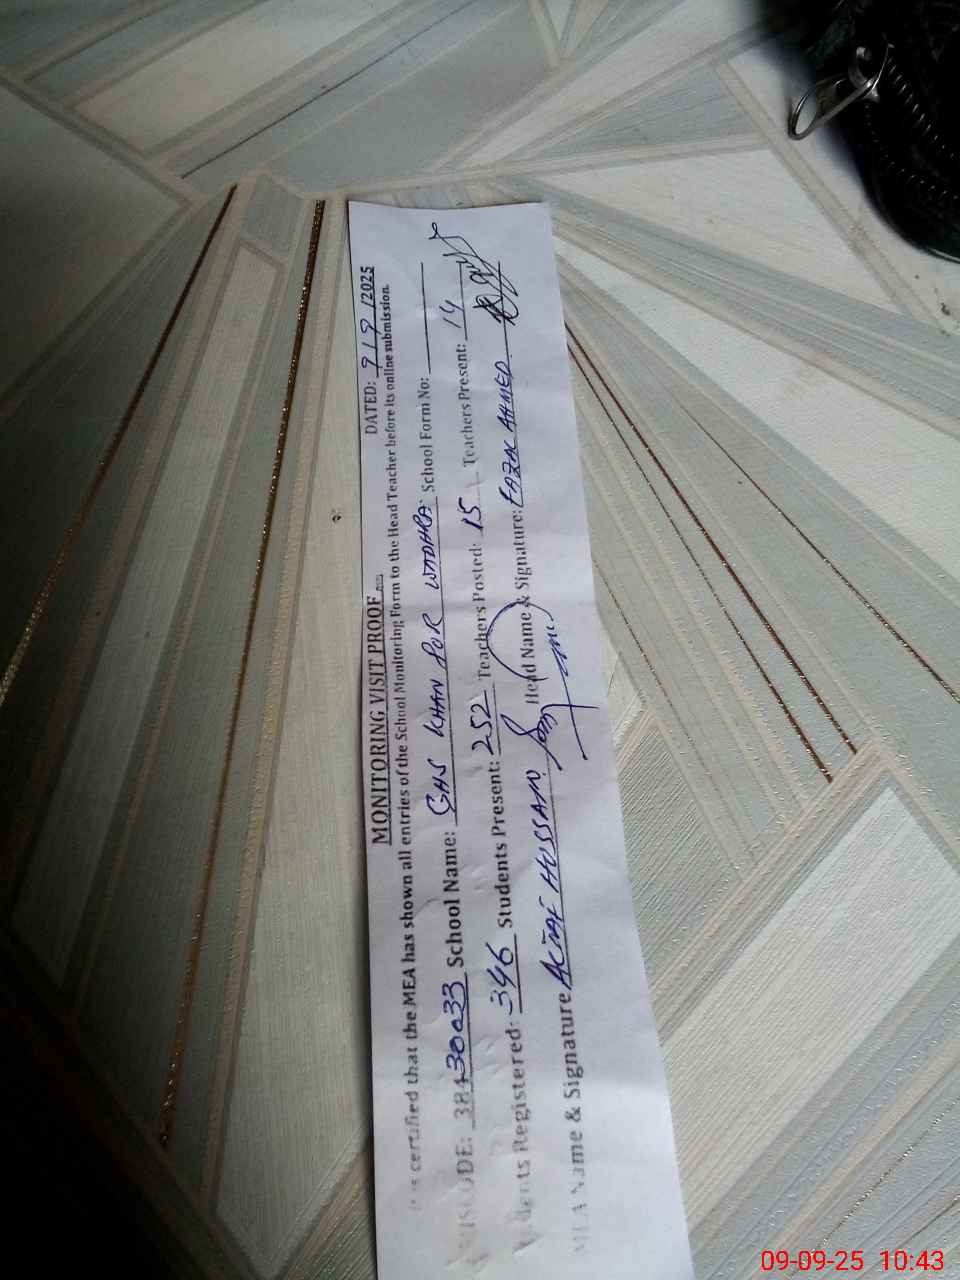 MONITORING VISIT PROOF DATED: 9/9/2025
It is certified that the MEA has shown all entries of the School Monitoring Form to the Head Teacher before its online submission.
EMISCODE: 38430033 School Name: GHS KHAN PUR WADHRA School Form No:
Students Registered: 346 Students Present: 252 Teachers Posted: 15 Teachers Present: 14
MEA Name & Signature HUSSAIN Head Name & Signature: FAZAL AHMED
09-09-25 10:43